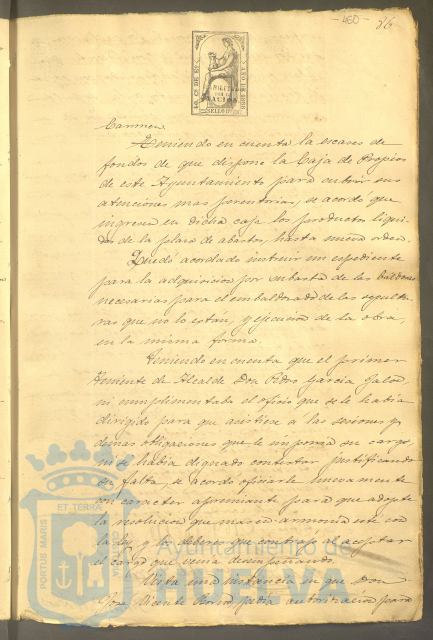 -460- 86
Carmen.
Teniendo en cuenta la escases de
fondos de que dispone la Caja de Propios
de este Ayuntamiento para cubrir sus
atenciones mas perentorias, se acordó que
ingrese en dicha caja los productos liqui-
dos de la plaza de abastos, hasta nueva orden.
Quedó acordado instruir un espediente
para la adquisicion por subasta de las baldosas
necesarias para el embaldosado de las sepultu-
ras que no lo están, y ejecucion de la obra,
en la misma forma.
Teniendo en cuenta que el primer
Teniente de Alcalde Don Pedro Garcia
ni cumplimentaba el oficio que se le habia
dirigido para que asistiese a las sesiones y
demas obligaciones que le imponia su cargo,
ni se habia dignado contestar justificando
su falta, se acordó oficiarle nuevamente
con carácter apremiante para que adopte
la resolucion que mas en armonia este con
la ley y los deberes que contrajo al aceptar
el cargo que venia desempeñando.
Vista una instancia en que Don
José Vicente pedia autorizacion para
PORTUS MARIS ET TERRAE
Ayuntamiento de
HUELVA